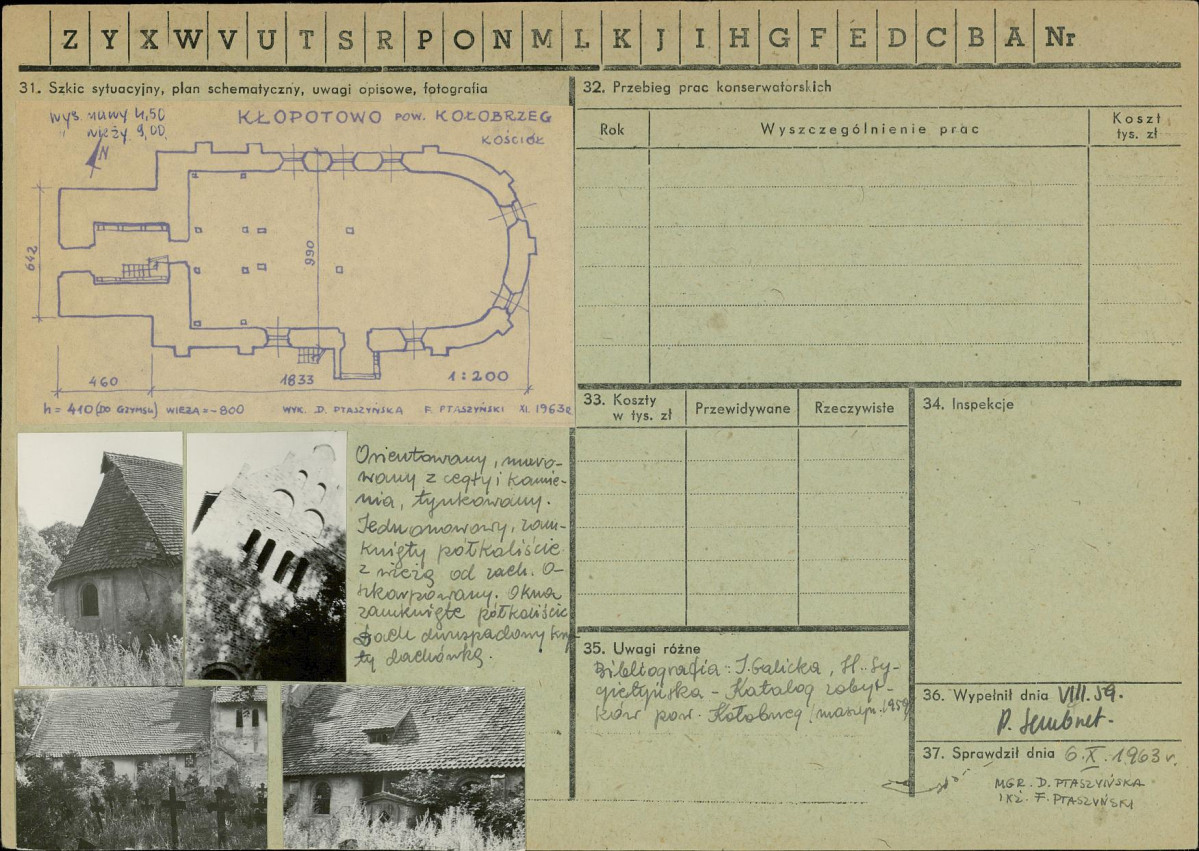 Z Y X W V U T S R P O N M L K J I H G F E D C B A Nr
31. Szkic sytuacyjny, plan schematyczny, uwagi opisowe, fotografia
wys. nawy 4,50
" wieży 9,00.
N
KŁOPOTOWO POW. KOŁOBRZEG
KOŚCIÓŁ
642
990
460
1833
1:200
h = 410 (DO GZYMSU) WIEŻA = ~800 WYK. D. PTASZYŃSKA F. PTASZYŃSKI XI. 1963 r.
Orientowany, muro-
wany z cegły i kamie-
nia, tynkowany.
Jednonawowy, zam-
knięty półkoliście
z wieżą od zach. O-
szkarpowany. Okna
zamknięte półkoliście
Dach dwuspadowy kry-
ty dachówką.
32. Przebieg prac konserwatorskich
Rok
Wyszczególnienie prac
Koszt
tys. zł
33. Koszty
w tys. zł
Przewidywane
Rzeczywiste
34. Inspekcje
35. Uwagi różne
Bibliografia: J. Galicka, H. Sy-
gietyńska - Katalog zabyt-
ków pow. Kołobrzeg /maszyn. 1959/
36. Wypełnił dnia VIII. 59.
37. Sprawdził dnia 6.X.1963 r.
MGR. D. PTASZYŃSKA
INŻ. F. PTASZYŃSKI